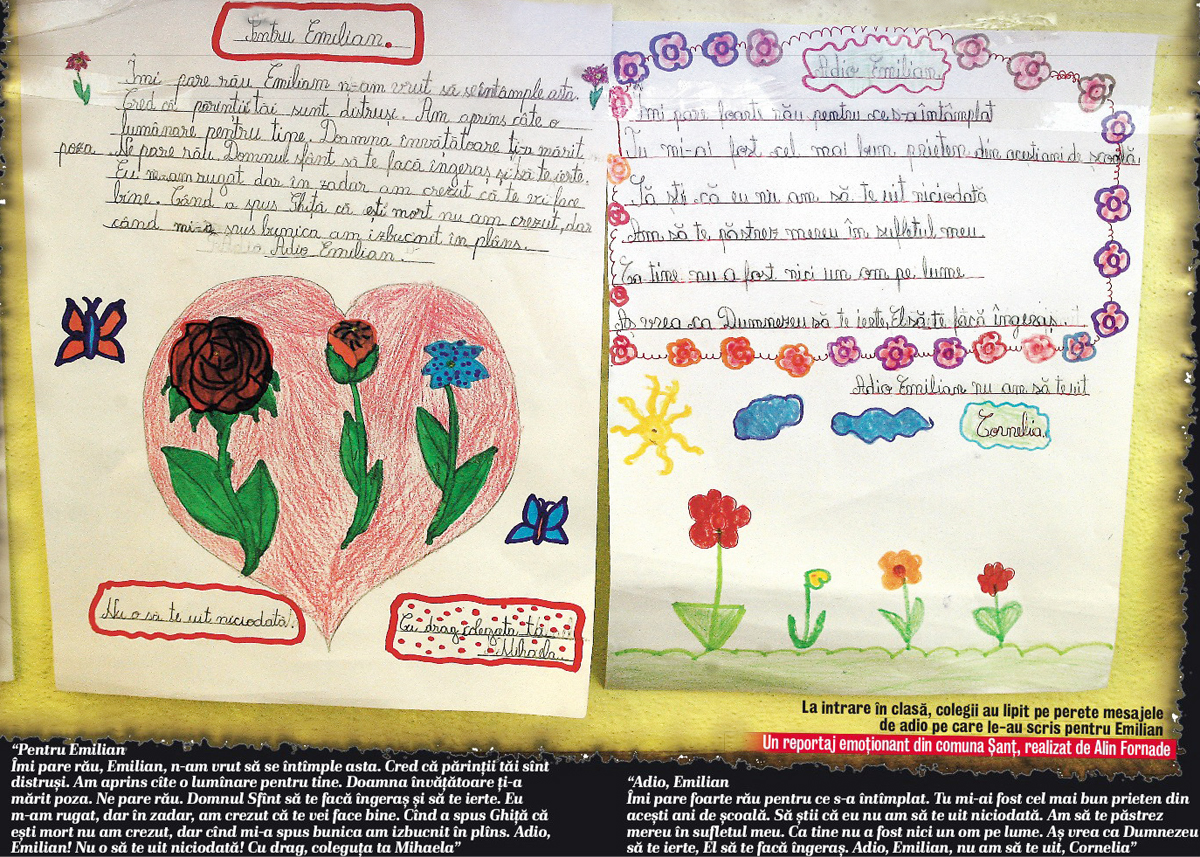 Pentru Emilian.
Îmi pare rău Emilian n-am vrut să se întâmple asta.
Cred că părinții tăi sunt distruși. Am aprins câte o
lumânare pentru tine. Doamna învătătoare ți-a mărit
poza. Ne pare rău. Domnul sfânt să te facă îngeraș și să te ierte.
Eu m-am rugat dar în zadar am crezut că te vei face
bine. Când a spus Ghiță că ești mort nu am crezut, dar
când mi-a spus bunica am izbucnit în plâns.
Adio Emilian.
Nu o să te uit niciodată!
Cu drag colegața ta
Mihaela
Adio Emilian
Îmi pare foarte rău pentru ce s-a întâmplat
Tu mi-ai fost cel mai bun prieten din acești ani de școală
Să ști că eu nu am să te uit niciodată
Am să te păstrez mereu în sufletul meu
Ca tine nu a fost nici un om pe lume
Aș vrea ca Dumnezeu să te ierte, El să te facă îngeraș.
Adio Emilian nu am să te uit
Cornelia
La intrare în clasă, colegii au lipit pe perete mesajele
de adio pe care le-au scris pentru Emilian
Un reportaj emoționant din comuna Șanț, realizat de Alin Fornade
“Pentru Emilian
Îmi pare rău, Emilian, n-am vrut să se întîmple asta. Cred că părinții tăi sînt
distruși. Am aprins cîte o lumînare pentru tine. Doamna învățătoare ți-a
mărit poza. Ne pare rău. Domnul Sfînt să te facă îngeraș și să te ierte. Eu
m-am rugat, dar în zadar, am crezut că te vei face bine. Cînd a spus Ghiță că
ești mort nu am crezut, dar cînd mi-a spus bunica am izbucnit în plîns. Adio,
Emilian! Nu o să te uit niciodată! Cu drag, coleguța ta Mihaela”
“Adio, Emilian
Îmi pare foarte rău pentru ce s-a întîmplat. Tu mi-ai fost cel mai bun prieten din
acești ani de școală. Să știi că eu nu am să te uit niciodată. Am să te păstrez
mereu în sufletul meu. Ca tine nu a fost nici un om pe lume. Aș vrea ca Dumnezeu
să te ierte, El să te facă îngeraș. Adio, Emilian, nu am să te uit, Cornelia”